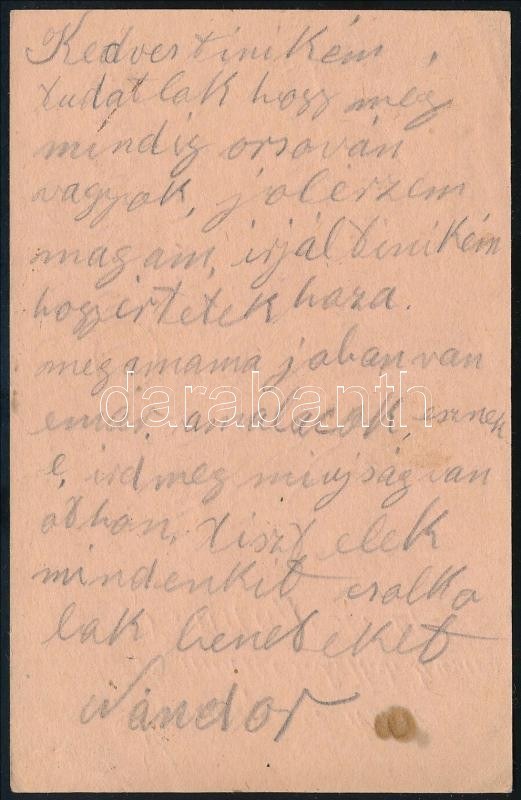 Kedves tinikém,
tudatlak hogy még
mindig orsován
vagyok, jolérzem
magam, irjál tinikém
hogyértetek haza.
megamama jobanvan
emár, amalacok, esznek
e, irdmeg miujságvan
othon, tisztelek
mindenkit csolko
lak beneteket
Nándor
darabanth